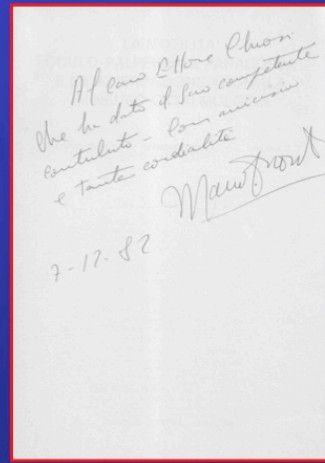 Al caro Ettore
che ha dato il suo competente
contributo – Con amicizia
e tanta cordialità
7-12-82